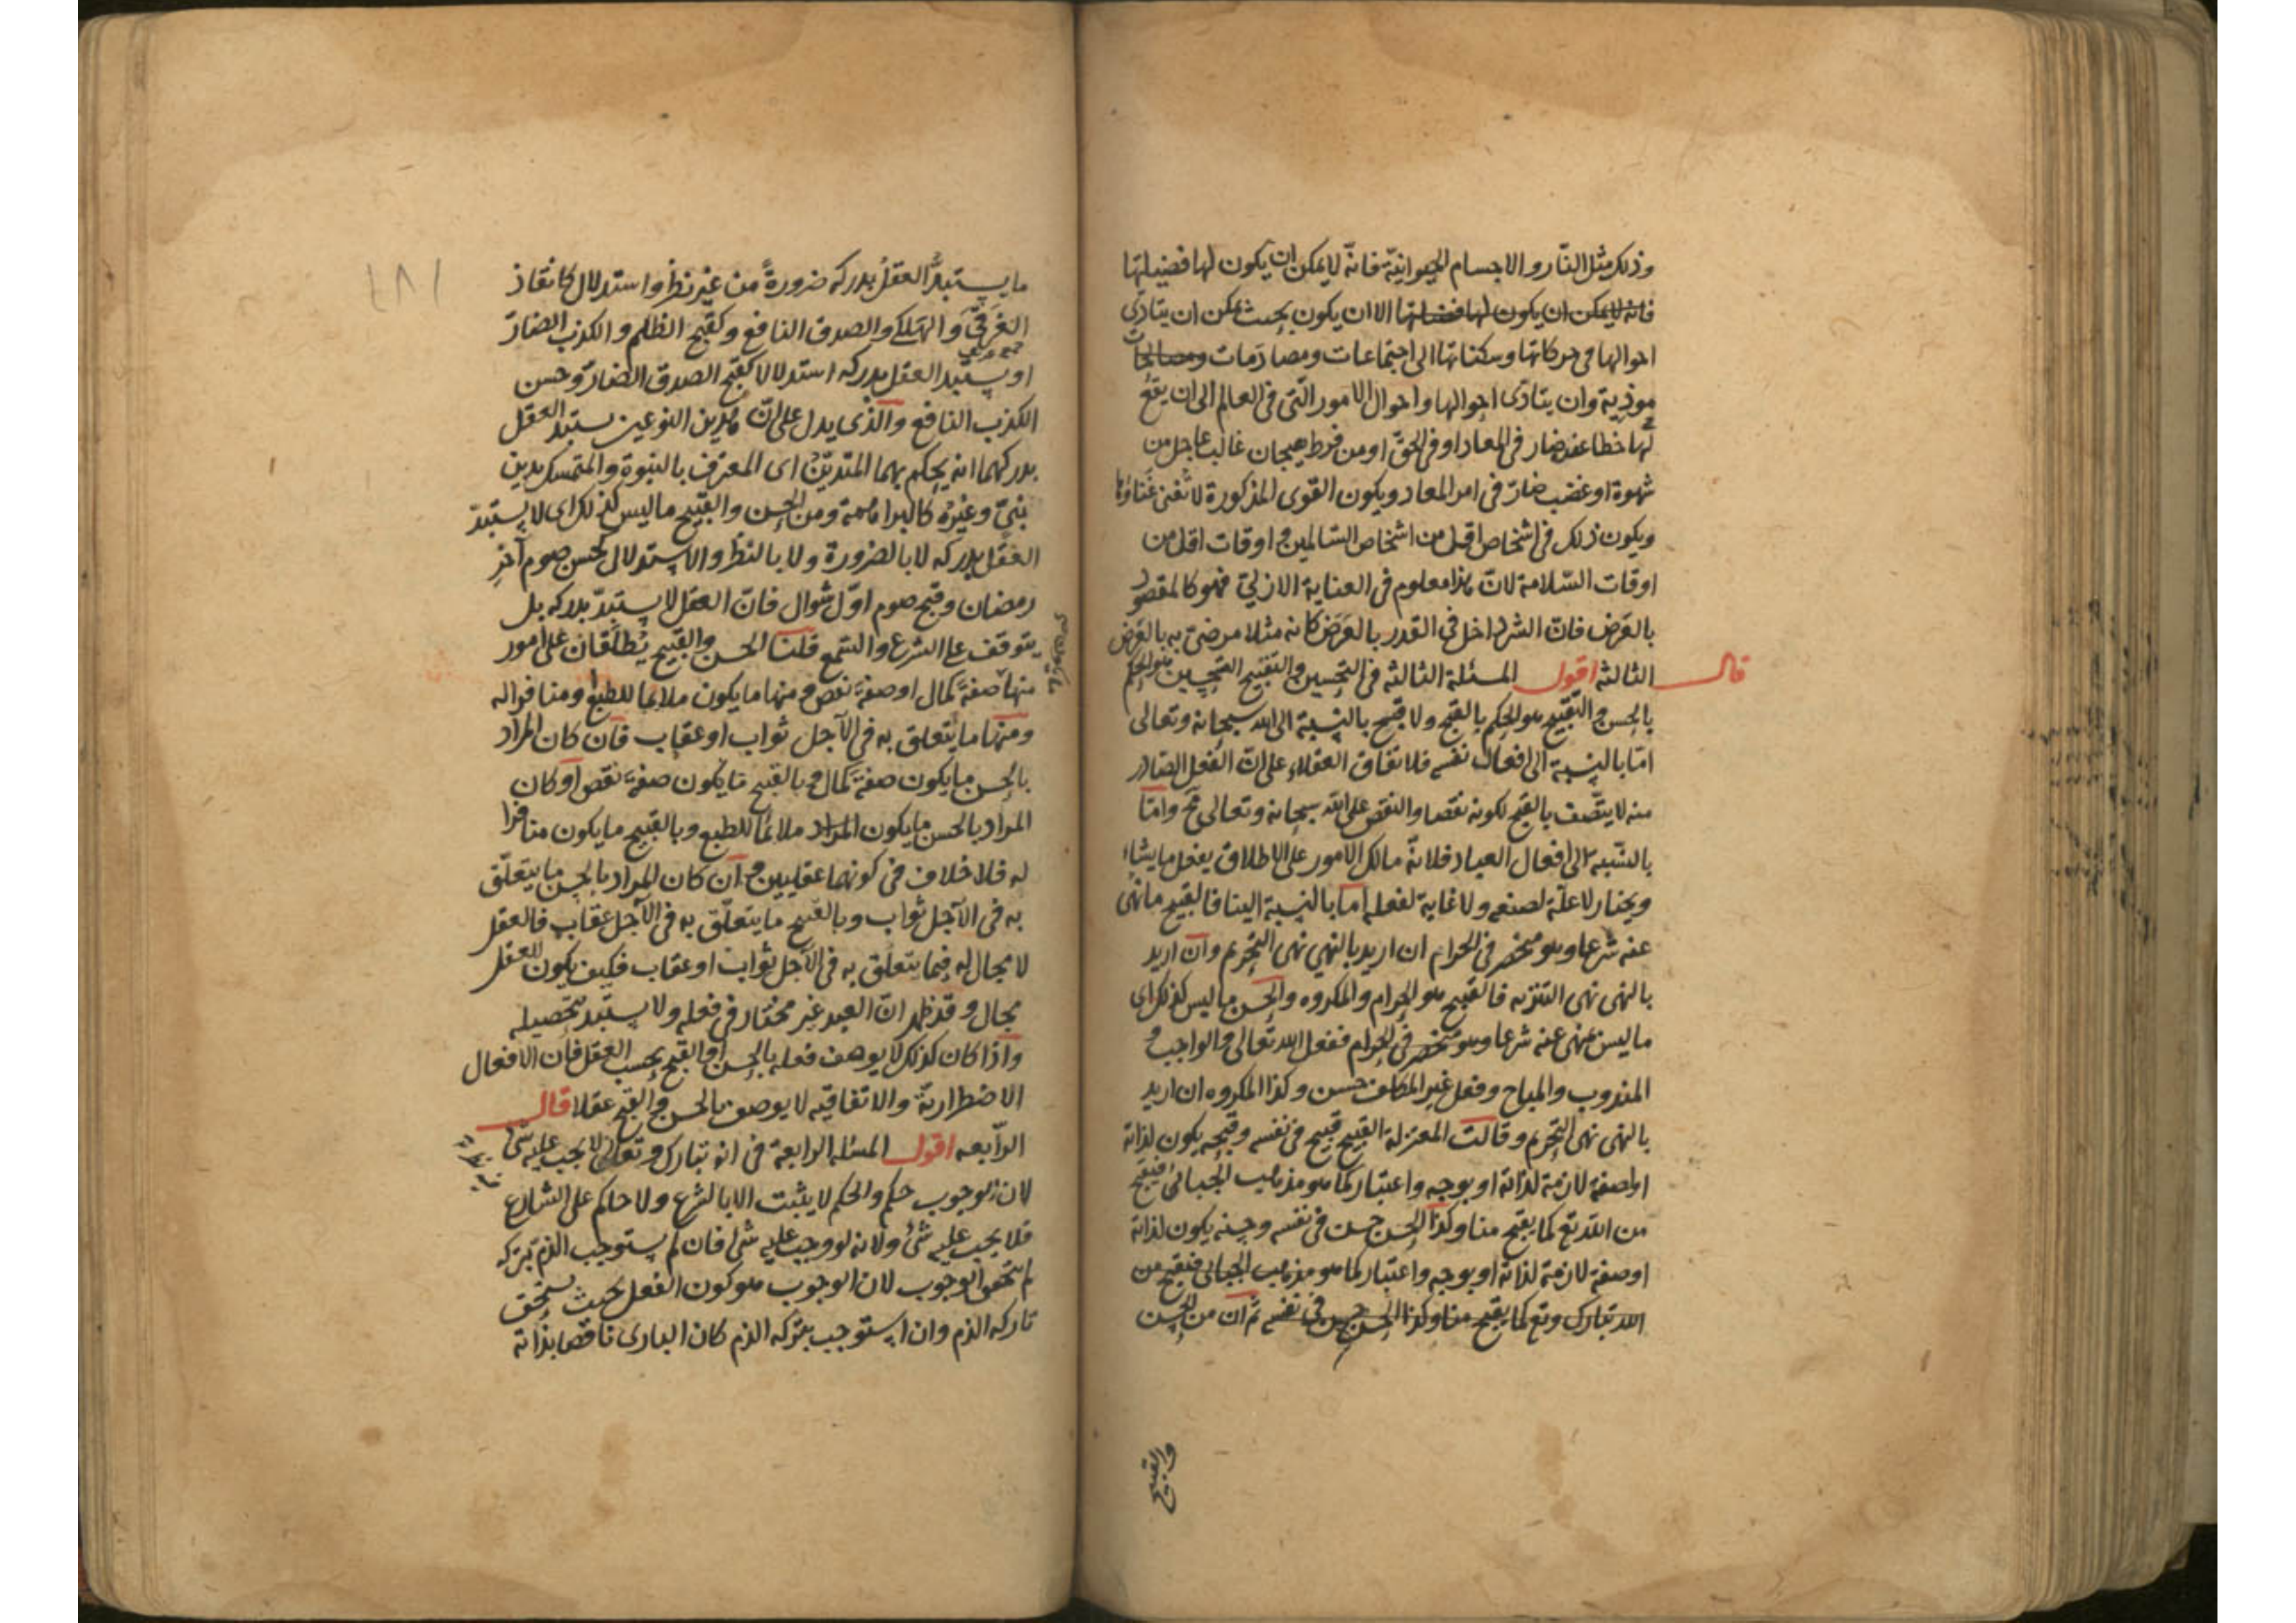 وذلك مثل النار والاجسام الحيوانية فانه لا يمكن ان يكون لها فضيلتها
فانه لا يمكن ان يكون لها فضيلتها الا ان يكون بحيث يمكن ان يتادى
احوالها فى حركاتها وسكناتها الى اجتماعات ومصادمات ومصاكات
موذية وان يتادى احوالها واحوال الامور التى فى العالم الى ان يقع
لها خطا عقد ضار فى المعاد او فى الحق او من فرط هيجان غالب عاجل من
شهوة او غضب ضار فى امر المعاد ويكون القوى المذكورة لا تغنى غناؤها
ويكون ذلك فى اشخاص اقل من اشخاص السالمين و اوقات اقل من
اوقات السلامة لان هذا معلوم فى العناية الازلية فهو كالمقصود
بالعرض فان الشر داخل فى القدر بالعرض كانه مثلا مرضى به بالعرض
قال الثالثه اقول المسئلة الثالثه فى التحسين والتقبيح التحسين هو الحكم
بالحسن والتقبيح هو الحكم بالقبح ولا قبيح بالنسبة الى الله سبحانه وتعالى
اما بالنسبة الى افعال نفسه فلاتفاق العقلاء على ان الفعل الصادر
منه لا يتصف بالقبح لكونه نقصا والنقص على الله سبحانه وتعالى مح واما
بالنسبة الى افعال العباد فلانه مالك الامور على الاطلاق يفعل ما يشاء
ويختار لا علة لصنعه ولا غاية لفعله اما بالنسبة الينا فالقبيح ما نهى
عنه شرعا وهو منحصر فى الحرام ان اريد بالنهى نهى التحريم وان اريد
بالنهى نهى التنزيه فالقبيح هو الحرام والمكروه والحسن ما ليس كذلك اى
ما ليس منهى عنه شرعا وهو منحصر فى الحرام ففعل الله تعالى والواجب و
المندوب والمباح وفعل غير المكلف حسن وكذا المكروه ان اريد
بالنهى نهى التحريم وقالت المعتزلة القبيح قبيح فى نفسه وقبحه يكون لذاته
او لصفة لازمة لذاته او بوجه واعتبار كما هو مذهب الجبائى فيقبح
من الله تع كما يقبح منا وكذا الحسن حسن فى نفسه وحسنه يكون لذاته
او صفة لازمة لذاته او بوجه واعتبار كما هو مذهب الجبائى فيقبح من
الله تبارك وتع كما يقبح منا وكذا الحسن حسن فى نفسه ثم ان من الحسن
والقبيح
ما يستبد العقل بدركه ضرورة من غير نظر واستدلال كانقاذ
الغرقى والهلكى والصدق النافع وكقبح الظلم والكذب الضار
او يستبد العقل بدركه استدلالا كقبح الصدق الضار وحسن
الكذب النافع والذى يدل على ان هذين النوعين يستبد العقل
بدركهما انه يحكم بهما المتدين اى المعترف بالنبوة والمتمسك بدين
نبى وغيره كالبراهمة ومن الحسن والقبيح ما ليس كذلك اى لا يستبد
العقل بدركه لا بالضرورة ولا بالنظر والاستدلال كحسن صوم آخر
رمضان وقبح صوم اول شوال فان العقل لا يستبد بدركه بل
يتوقف على الشرع والسمع قلنا الحسن والقبيح يطلقان على امور
منها صفة كمال او صفة نقص ومنها ما يكون ملايما للطبع ومنافرا له
ومنها ما يتعلق به فى الآجل ثواب او عقاب فان كان المراد
بالحسن ما يكون صفة كمال وبالقبيح ما يكون صفة نقص او كان
المراد بالحسن ما يكون المراد ملائما للطبع وبالقبيح ما يكون منافرا
له فلا خلاف فى كونهما عقليين وان كان المراد بالحسن ما يتعلق
به فى الآجل ثواب وبالقبيح ما يتعلق به فى الآجل عقاب فالعقل
لا مجال له فيما يتعلق به فى الآجل ثواب او عقاب فكيف يكون للعقل
مجال وقد ظهر ان العبد غير مختار فى فعله ولا يستبد بتحصيله
واذا كان كذلك لا يوصف فعله بالحسن او القبح بحسب العقل فان الافعال
الاضطرارية والاتفاقيه لا يوصف بالحسن والقبح عقلا قال
الرابعه اقول المسئله الرابعة فى انه تبارك وتعالى لا يجب عليه شى
لان الوجوب حكم والحكم لا يثبت الا بالشرع ولا حاكم على الشارع
فلا يجب عليه شئ ولانه لو وجب عليه شى فان لم يستوجب الذم بتركه
لم يتحقق الوجوب لان الوجوب هو كون الفعل بحيث يستحق
تاركه الذم وان استوجب بتركه الذم كان البارى ناقصا بذاته